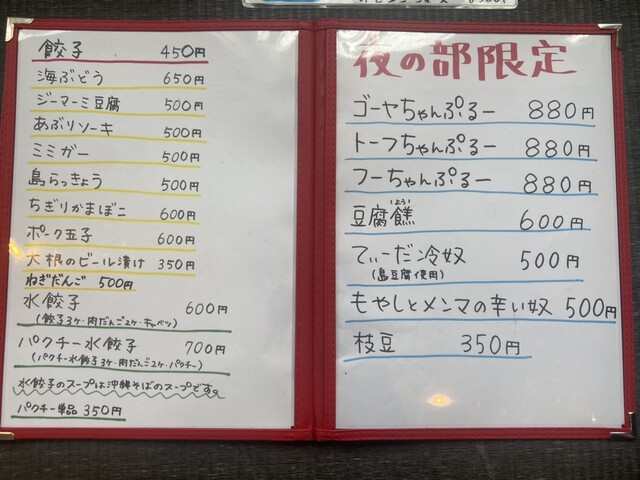 餃子 450円
海ぶどう 650円
ジーマーミ豆腐 500円
あぶりソーキ 500円
ミミガー 500円
島らっきょう 500円
ちぎりかまぼこ 600円
ポーク玉子 600円
大根のビール漬け 350円
ねぎだんご 500円
水餃子 600円
(餃子3ケ・肉だんご2ケ・キャベツ)
パクチー水餃子 700円
(パクチー水餃子3ケ・肉だんご2ケ・パクチー)
水餃子のスープは沖縄そばのスープです。
パクチー単品 350円
夜の部限定
ゴーヤちゃんぷるー 880円
トーフちゃんぷるー 880円
フーちゃんぷるー 880円
豆腐餻 600円
てぃーだ冷奴 500円
(島豆腐使用)
もやしとメンマの辛い奴 500円
枝豆 350円